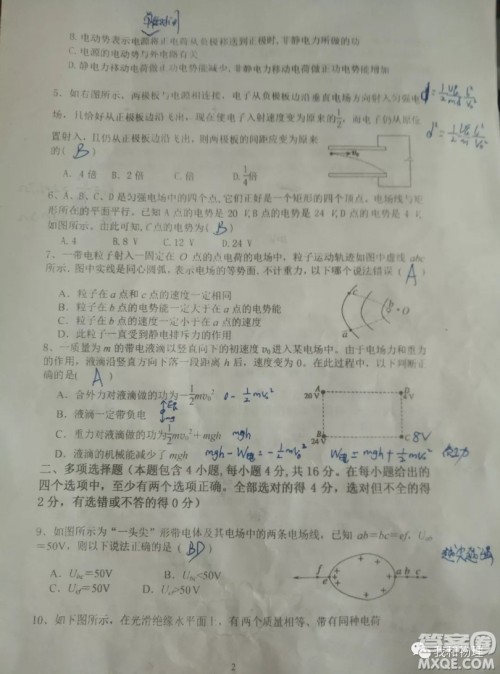 B. 电动势表示电源将正电荷从负极移送到正极时，非静电力所做的功
C. 电源的电动势与外电路有关
D. 静电力移动电荷做正功电势能减少，非静电力移动电荷做正功电势能增加
5、如右图所示，两极板与电源相连接，电子从负极板边沿垂直电场方向射入匀强电
场，且恰好从正极板边沿飞出，现在使电子入射速度变为原来的1/2，而电子仍从原位
置射入，且仍从正极板边沿飞出，则两极板的间距应变为原来
的( B )
A. 4倍 B. 2倍 C. 1/2倍 D. 1/4倍
6、A、B、C、D是匀强电场中的四个点，它们正好是一个矩形的四个顶点，电场线与矩
形所在的平面平行。已知A点的电势是20 V,B点的电势是24 V,D点的电势是4 V,
如图所示，由此可知，C点的电势为( B )
A. 4 B. 8 V C. 12 V D. 24 V
7、一带电粒子射入一固定在O点的点电荷的电场中，粒子运动轨迹如图中虚线abc
所示，图中实线是同心圆弧，表示电场的等势面，不计重力，以下哪个说法错误( A )
A、粒子在a点和c点的速度一定相同
B、粒子在b点的电势能一定大于在a点的电势能
C、粒子在b点的速度一定小于在a点的速度
D、此粒子一直受到静电排斥力的作用
c
b
O
a
8、一质量为m的带电液滴以竖直向下的初速度v₀进入某电场中，由于电场力和重力
的作用，液滴沿竖直方向下落一段距离h后，速度变为0。在此过程中，以下判断正
确的是( A )
A、合外力对液滴做的功为-1/2mv₀² 0-1/2mv₀²
B、液滴一定带负电
C、重力对液滴做的功为1/2mv₀²+mgh mgh
D、液滴的机械能减少了mgh mgh-W电=-1/2mv₀² W电=mgh+1/2mv₀²
A
20 V
D
4V
B
24 V
C 8V
二、多项选择题（本题包含4小题，每小题4分，共16分。在每小题给出的
四个选项中，至少有两个选项正确。全部选对的得4分，选对但不全的得
2分，有选错或不答的得0分）
9、如图所示为“一头尖”形带电体及其电场中的两条电场线，已知ab=bc=ef，Uab
=50V，则以下说法正确的是( BD )
A、Ubc=50V B、Ubc<50V
C、Uef=50V D、Uef>50V
f
e
a b c
10、如下图所示，在光滑绝缘水平面上，有两个质量相等、带有同种电荷
2
我和物理
答案圈
MXQE.COM